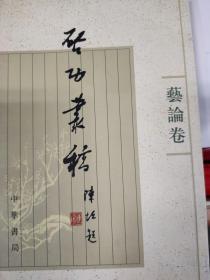 啓功叢稿
藝論卷
陳垣題
中華書局